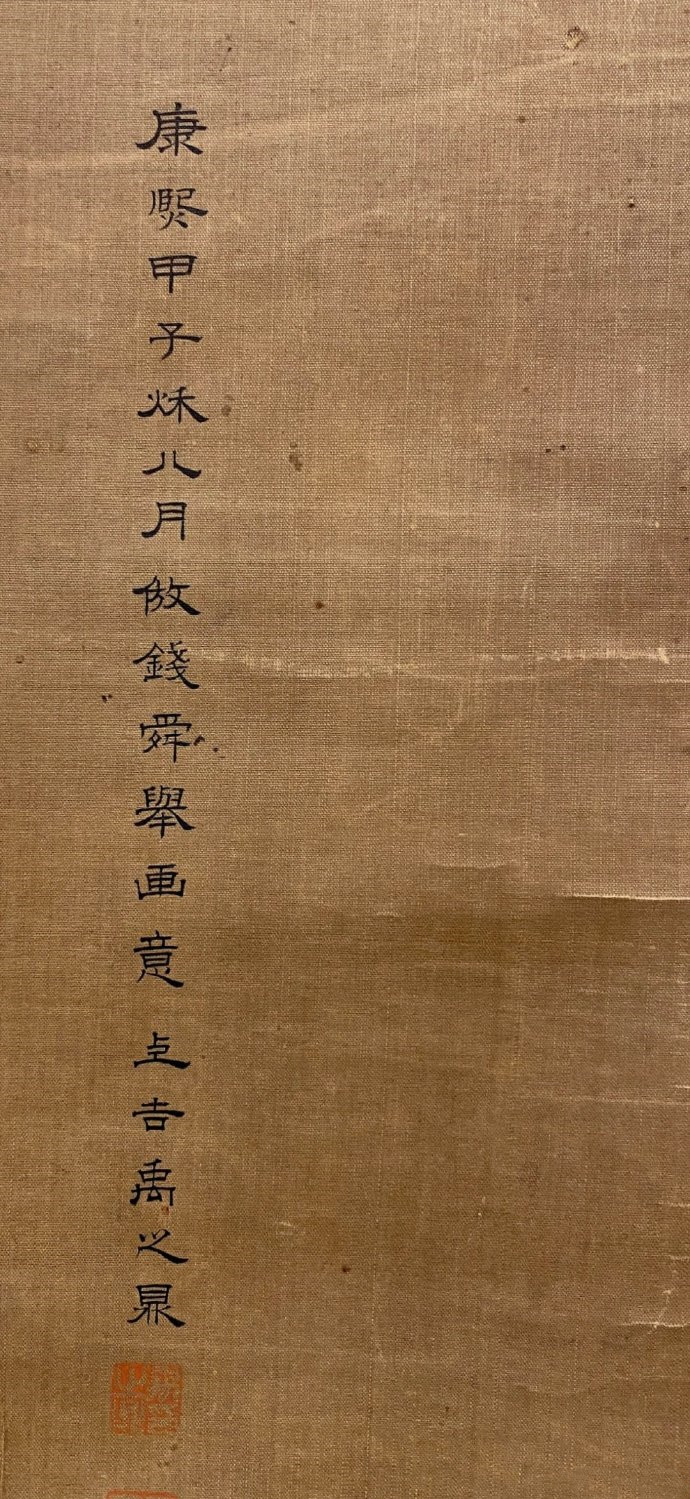 康熙甲子秌八月倣錢舜舉画意 上吉禹之鼎